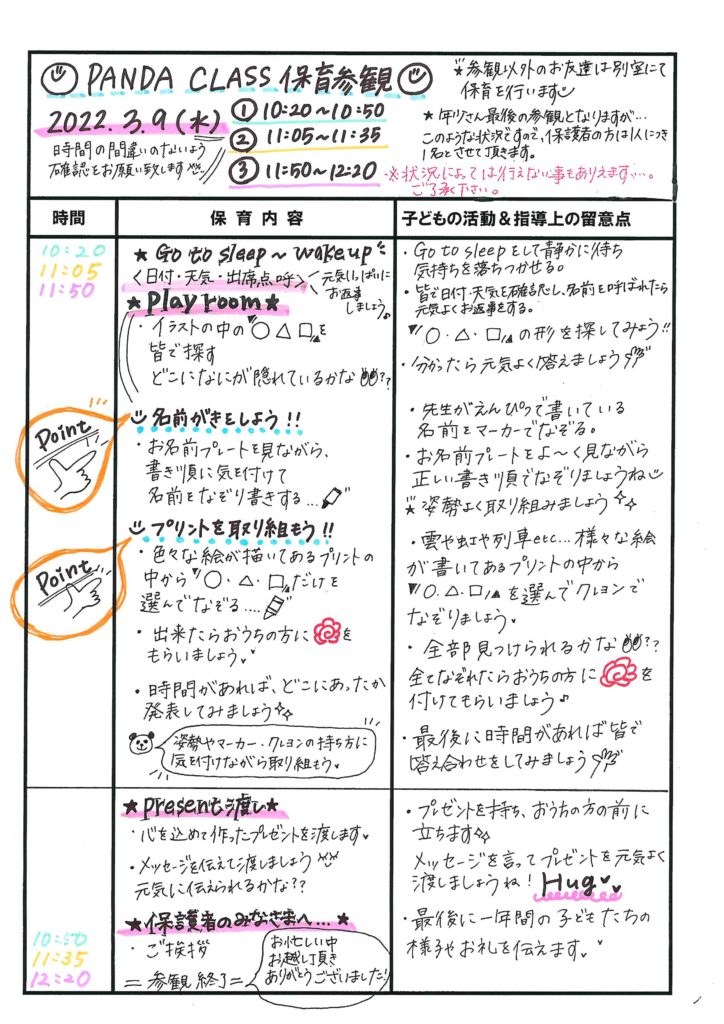 PANDA CLASS 保育参観
2022.3.9(水)
時間の間違いのないよう
確認をお願い致します
① 10:20〜10:50
② 11:05〜11:35
③ 11:50〜12:20
*参観以外のお友達は別室にて
保育を行います
★年少さん最後の参観となりますが…
このような状況ですので、保護者の方は1人につき
1名とさせて頂きます。
※状況によっては行えない事もありえます…。
ご了承ください。
時間
保育内容
子どもの活動&指導上の留意点
10:20
11:05
11:50
★Go to sleep〜wake up
〈日付・天気・出席点呼〉
元気いっぱいに
お返事
しましょう♪
★Play room★
・イラストの中の"○△□"を
皆で探す
どこになにが隠れているかな??
・Go to sleepをして静かに待ち
気持ちを落ちつかせる。
・皆で日付・天気を確認し、名前を呼ばれたら
元気よくお返事をする。
"○・△・□"の形を探してみよう!!
・分かったら元気よく答えましょう
Point
名前がきをしよう!!
・お名前プレートを見ながら、
書き順に気を付けて
名前をなぞり書きする…
・先生がえんぴつで書いている
名前をマーカーでなぞる。
・お名前プレートをよ〜く見ながら
正しい書き順でなぞりましょうね
★姿勢よく取り組みましょう
Point
プリントを取り組もう!!
・色々な絵が描いてあるプリントの
中から"○・△・□"だけを
選んでなぞる....
・出来たらおうちの方に
を
もらいましょう。
・時間があれば、どこにあったか
発表してみましょう
姿勢やマーカー・クレヨンの持ち方に
気を付けながら取り組もう
・雲や虹や列車etc...様々な絵
が書いてあるプリントの中から
"○.△.□"を選んでクレヨンで
なぞりましょう
・全部見つけられるかな??
全てなぞれたらおうちの方に
を
付けてもらいましょう♪
・最後に時間があれば皆で
答え合わせをしてみましょう
★presentも渡し★
・心を込めて作ったプレゼントを渡します
・メッセージを伝えて渡しましょう
元気に伝えられるかな??
・プレゼントを持ち、おうちの方の前に
立ちます
メッセージを言ってプレゼントを元気よく
渡しましょうね! Hug
★保護者のみなさまへ…★
・ご挨拶
=参観終了=
お忙しい中
お越し頂き
ありがとうございました!
・最後に一年間の子どもたちの
様子やお礼を伝えます。
10:50
11:35
12:20